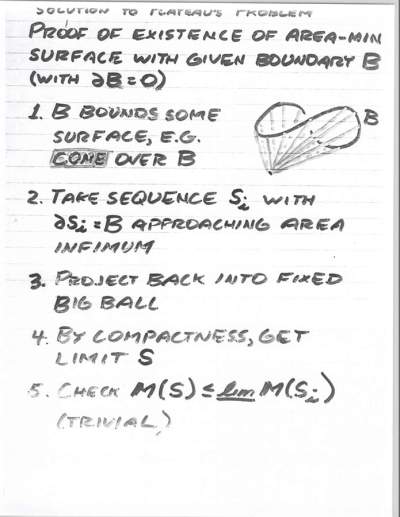 SOLUTION TO PLATEAU'S PROBLEM
PROOF OF EXISTENCE OF AREA-MIN
SURFACE WITH GIVEN BOUNDARY B
(WITH ∂B=0)
1. B BOUNDS SOME
SURFACE, E.G.
CONE OVER B
B
2. TAKE SEQUENCE Si WITH
∂Si=B APPROACHING AREA
INFIMUM
3. PROJECT BACK INTO FIXED
BIG BALL
4. BY COMPACTNESS, GET
LIMIT S
5. CHECK M(S) ≤ lim M(Si)
(TRIVIAL)